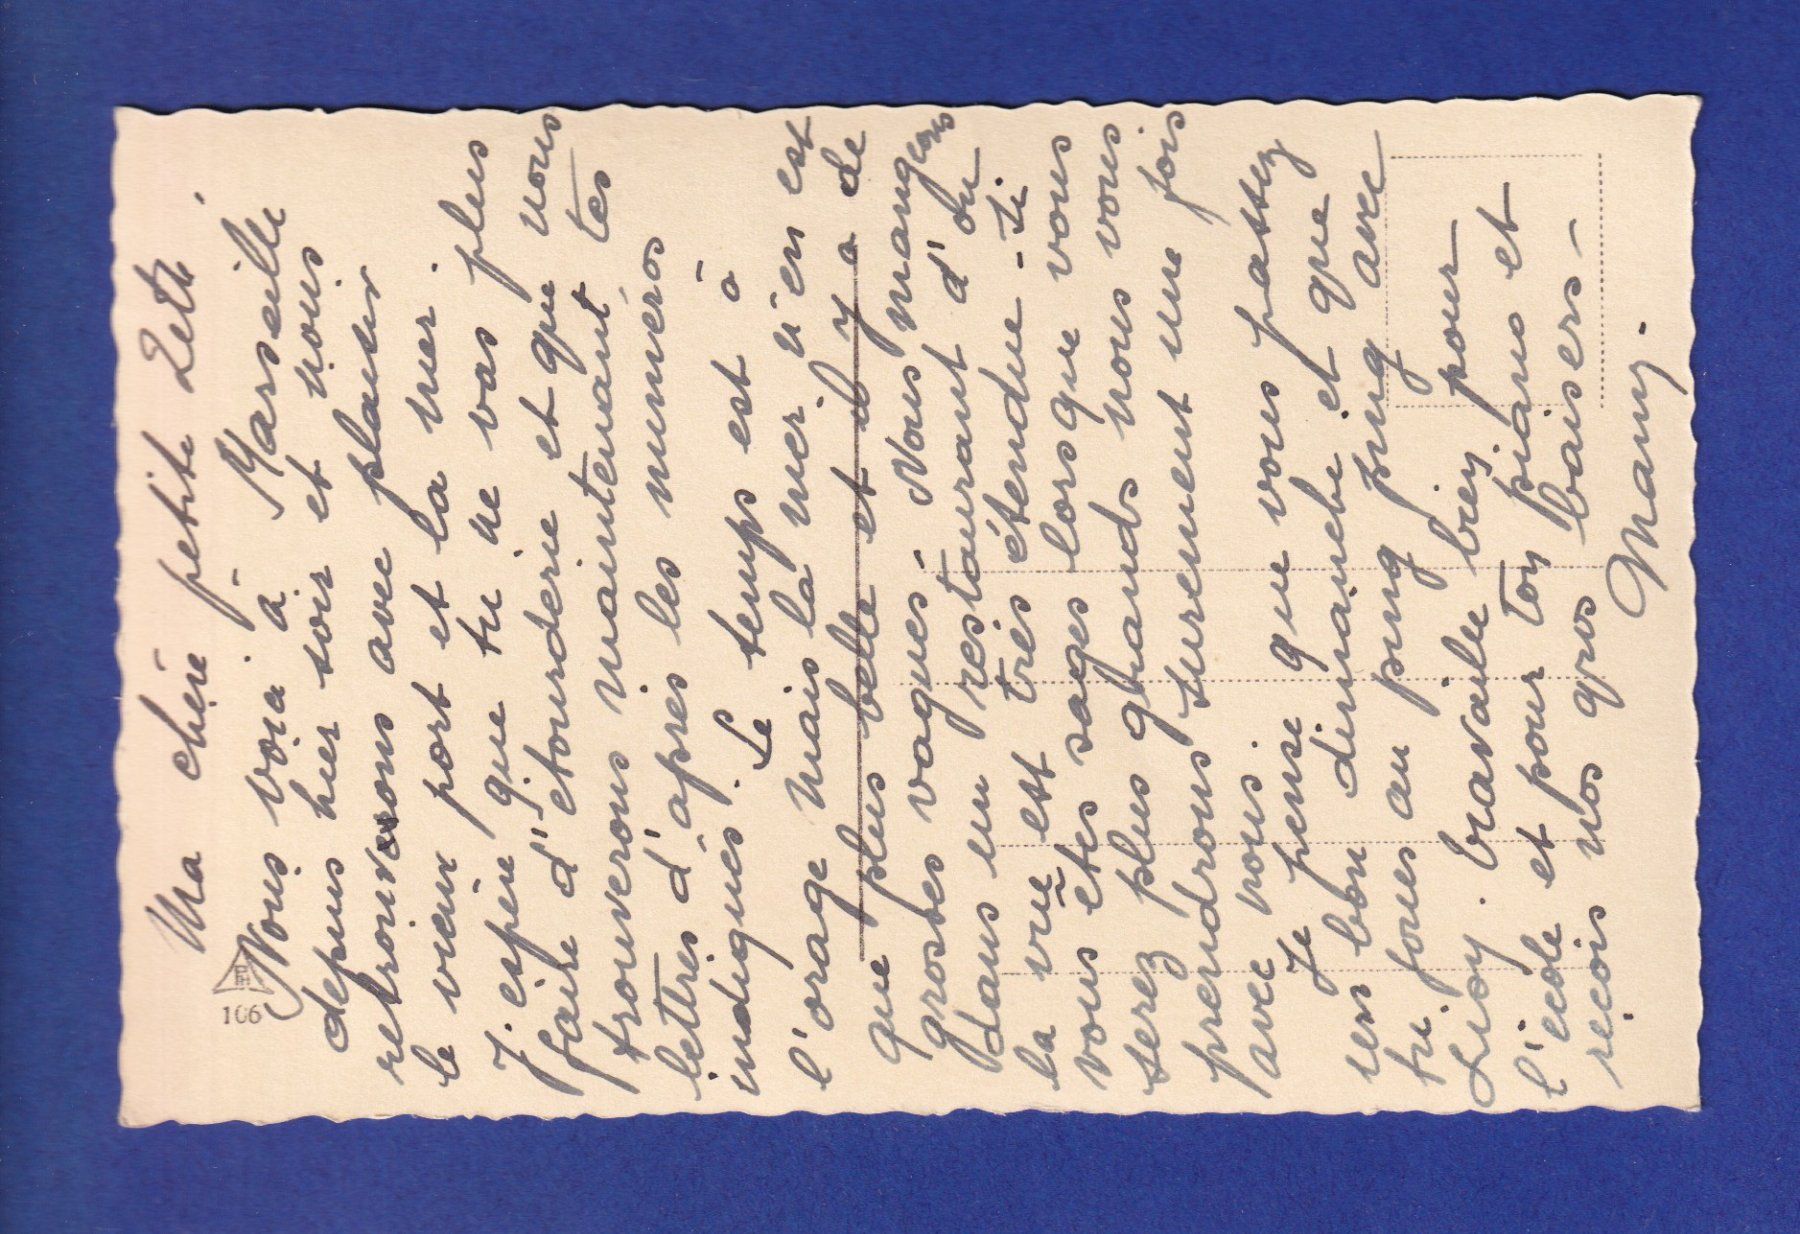 Ma chère petite Zette
Nous voici à Marseille
depuis hier soir et nous
retrouverons avec plaisir
le vieux port et la mer.
J'espère que tu ne vas plus
faire d'étourderie et que nous
trouverons maintenant tes
lettres d'après les numéros
indiqués. Le temps est à
l'orage mais la mer n'en est
que plus belle et il y a de
grosses vagues. Nous mangeons
dans un restaurant d'où
la vue est très étendue. Si
vous êtes sages lorsque vous
serez plus grands nous vous
prendrons surement une fois
avec nous.
Je pense que vous passez
un bon dimanche et que
tu joues au ping pong avec
Lisy. Travaille bien pour
l'école et pour ton piano et
reçois nos gros baisers -
Many.
106